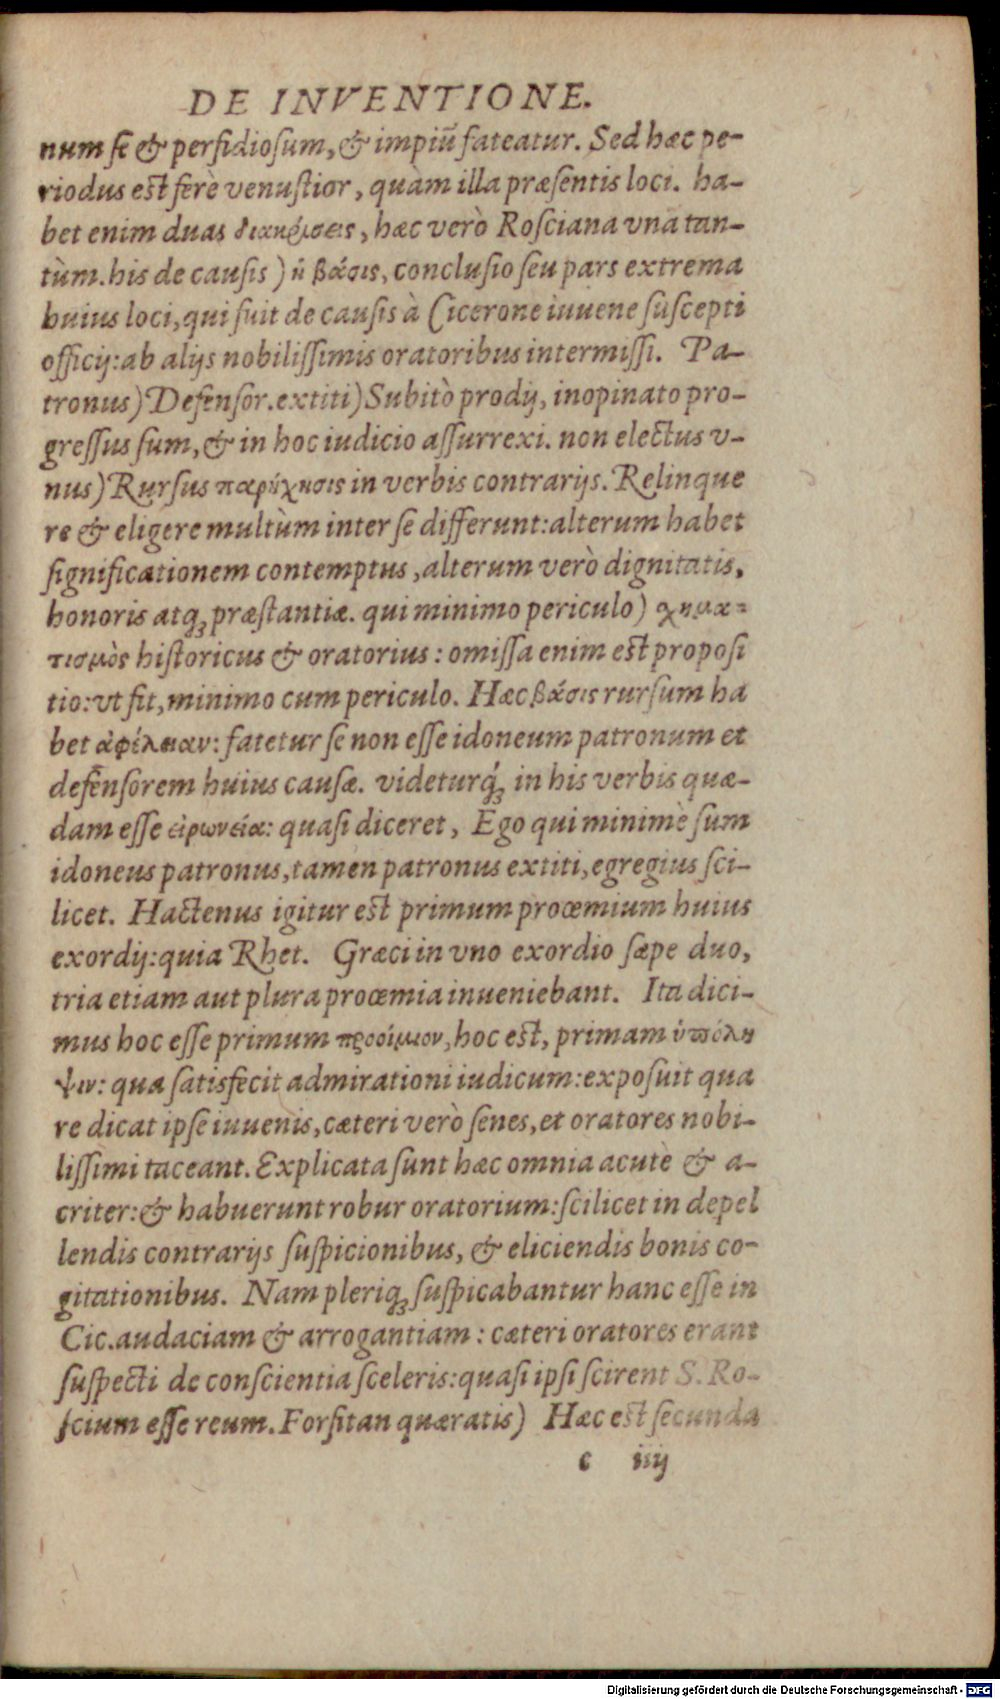 DE INVENTIONE.
num se & perfidiosum, & impiũ fateatur. Sed hæc pe-
riodus est ferè venustior, quàm illa præsentis loci. ha-
bet enim duas διακρίσεις, hæc verò Rosciana vna tan-
tùm. his de causis) ἡ βάσις, conclusio seu pars extrema
huius loci, qui fuit de causis à Cicerone iuuene suscepti
officij: ab alijs nobilissimis oratoribus intermissi. Pa-
tronus) Defensor. extiti) Subitò prodij, inopinato pro-
gressus sum, & in hoc iudicio assurrexi. non electus v-
nus) Rursus παρήχησις in verbis contrarijs. Relinque
re & eligere multùm inter se differunt: alterum habet
significationem contemptus, alterum verò dignitatis,
honoris atq; præstantiæ. qui minimo periculo) χημα-
τισμὸς historicus & oratorius: omissa enim est proposi
tio: vt fit, minimo cum periculo. Hæc βάσις rursum ha
bet ἀφέλειαν: fatetur se non esse idoneum patronum et
defensorem huius causæ. videturq́; in his verbis quæ-
dam esse εἰρωνεία: quasi diceret, Ego qui minimè sum
idoneus patronus, tamen patronus extiti, egregius sci-
licet. Hactenus igitur est primum proœmium huius
exordij: quia Rhet. Græci in vno exordio sæpe duo,
tria etiam aut plura proœmia inueniebant. Ita dici-
mus hoc esse primum προοίμιον, hoc est, primam ὑπόλη
ψιν: qua satisfecit admirationi iudicum: exposuit qua
re dicat ipse iuuenis, cæteri verò senes, et oratores nobi-
lissimi taceant. Explicata sunt hæc omnia acutè & a-
criter: & habuerunt robur oratorium: scilicet in depel
lendis contrarijs suspicionibus, & eliciendis bonis co-
gitationibus. Nam pleriq; suspicabantur hanc esse in
Cic. audaciam & arrogantiam: cæteri oratores erant
suspecti de conscientia sceleris: quasi ipsi scirent S. Ro-
scium esse reum. Forsitan quæratis) Hæc est secunda
c iiij
Digitalisierung gefördert durch die Deutsche Forschungsgemeinschaft - DFG